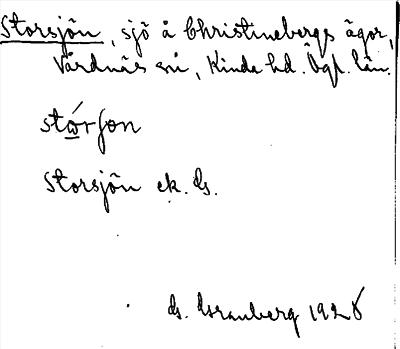 Storsjön, sjö å Christinebergs ägor,
Vårdnäs sn, Kinda hd. Ögl. län.
stωrʃon
Storsjön ek. ds.
G. Granberg 1926